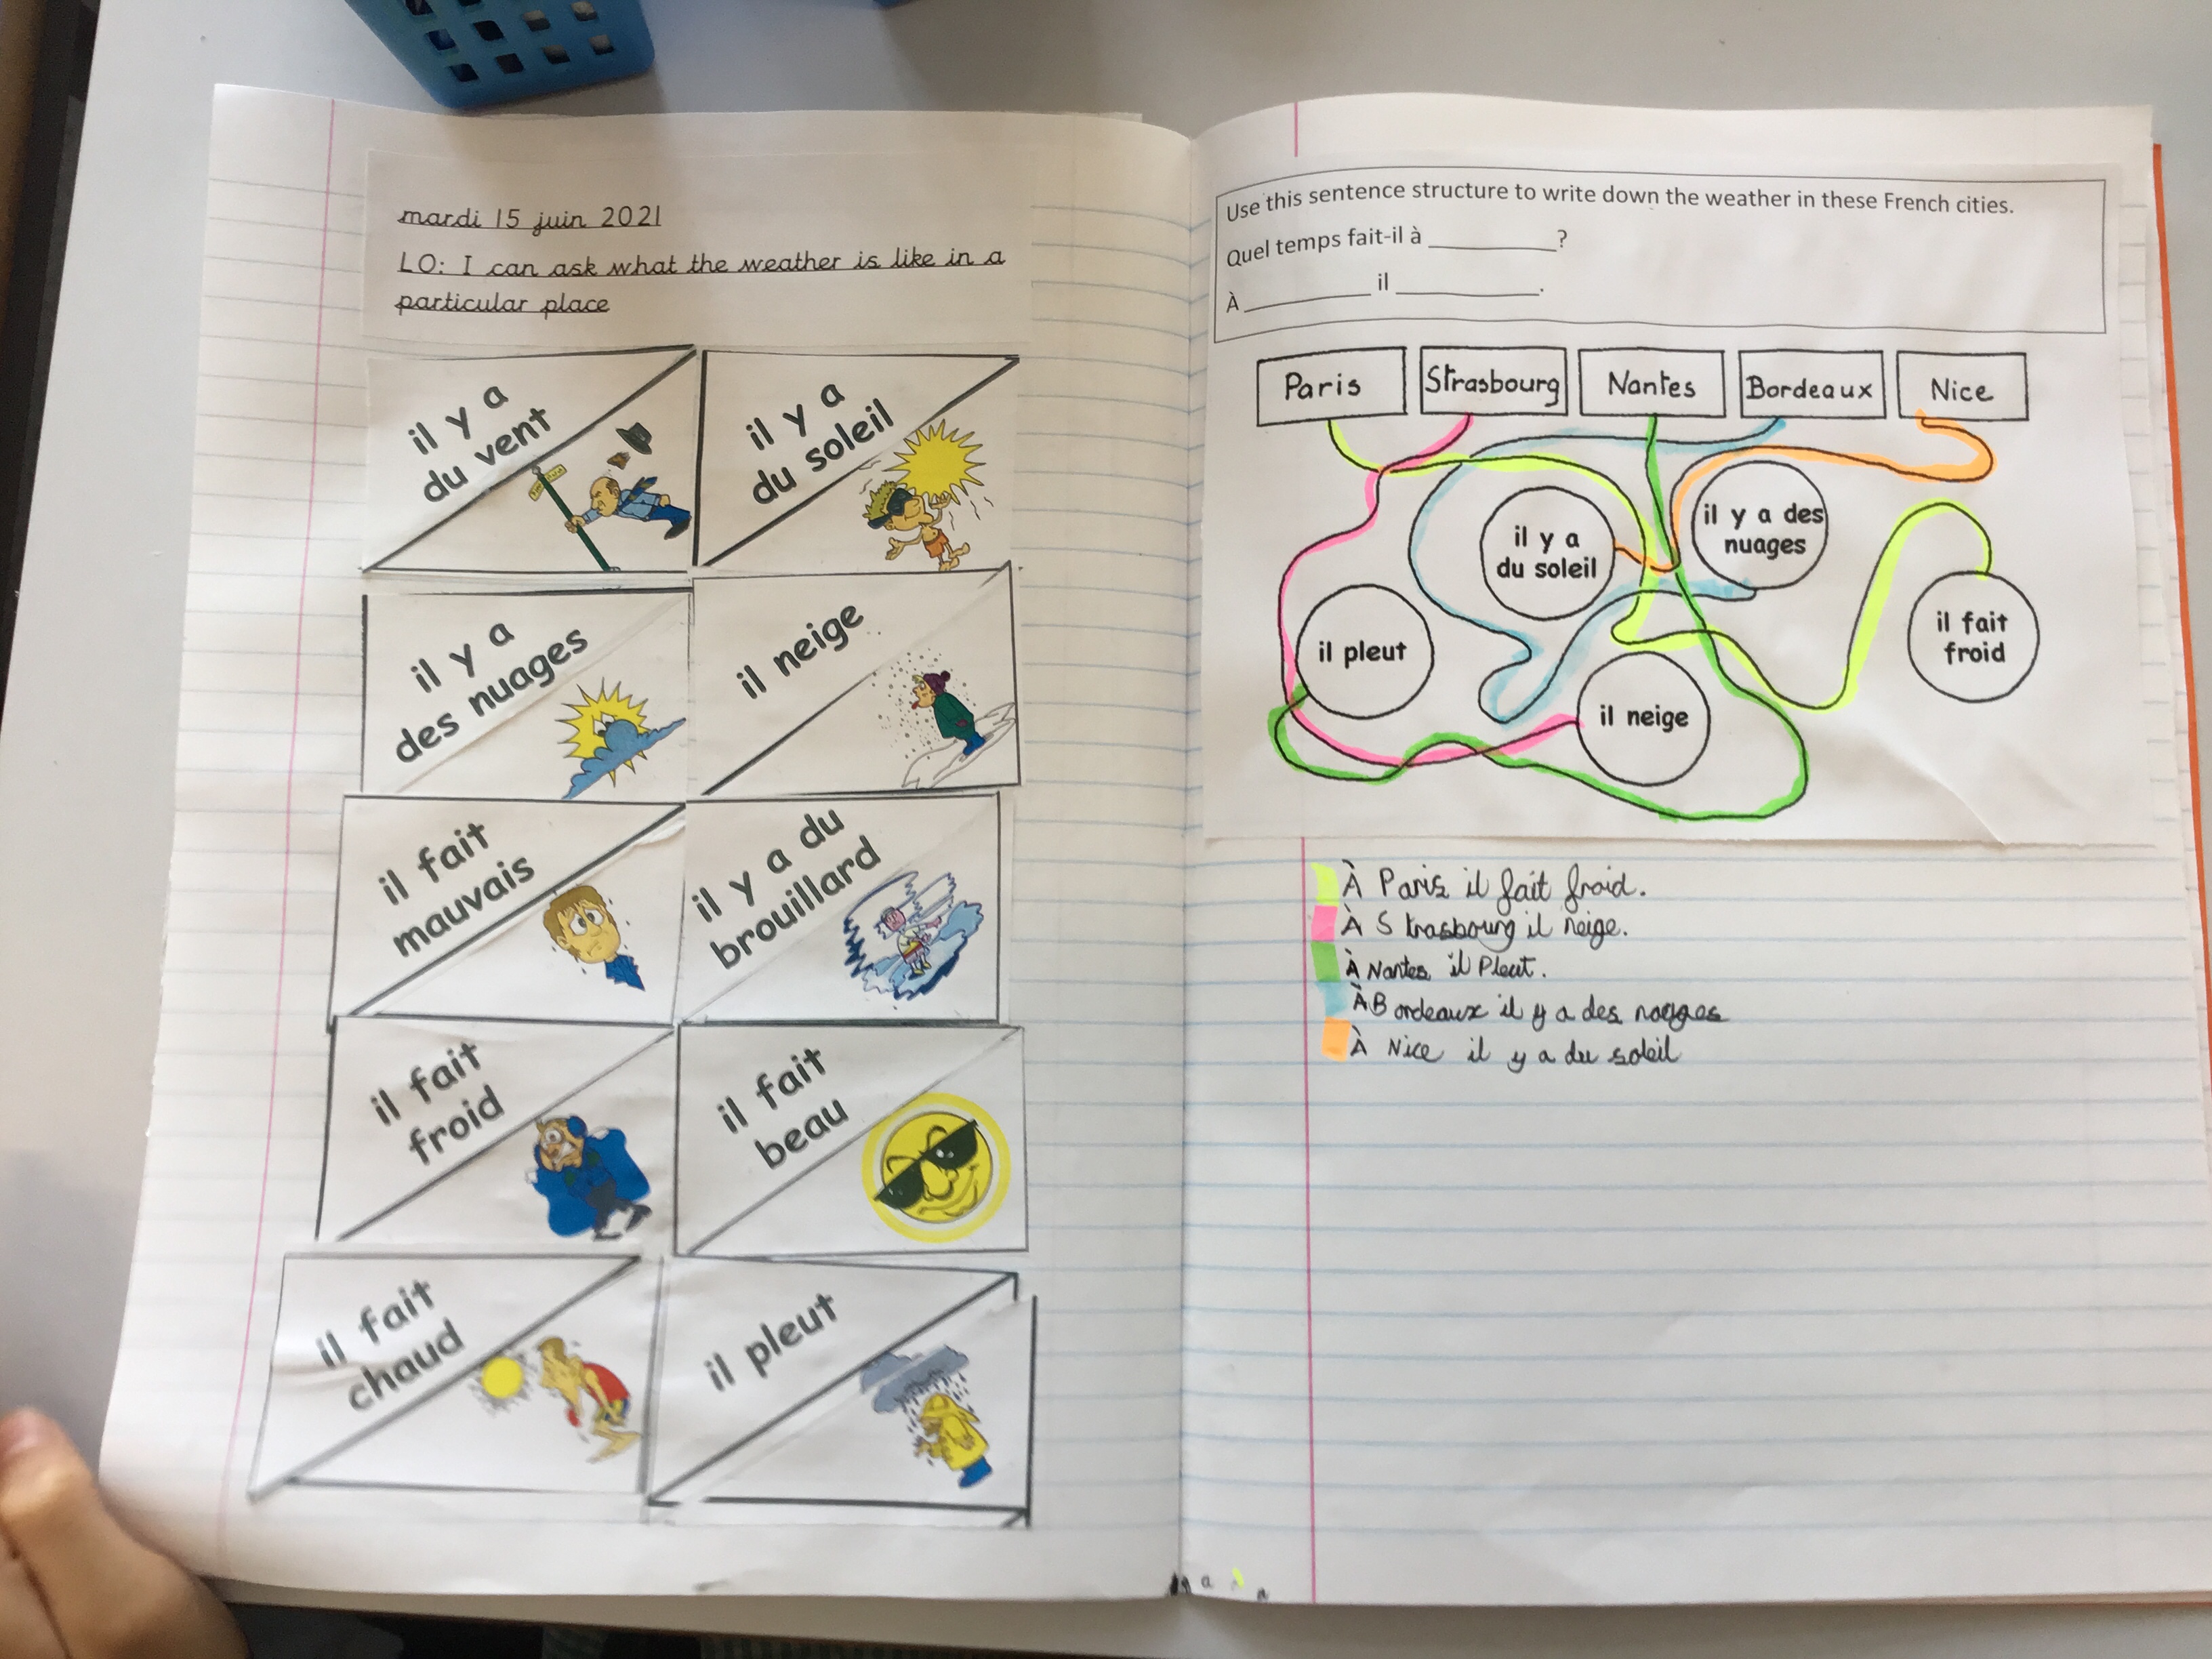 mardi 15 juin 2021
LO: I can ask what the weather is like in a
particular place
il y a
du vent
il y a
du soleil
il y a
des nuages
il neige
il fait
mauvais
il y a du
brouillard
il fait
froid
il fait
beau
il fait
chaud
il pleut
Use this sentence structure to write down the weather in these French cities.
Quel temps fait-il à __________?
À __________ il __________.
Paris
Strasbourg
Nantes
Bordeaux
Nice
il y a
du soleil
il y a des
nuages
il pleut
il neige
il fait
froid
À Paris il fait froid.
À S trasbourg il neige.
À Nantes il Pleut.
À B ordeaux il y a des
À Nice il y a du soleil